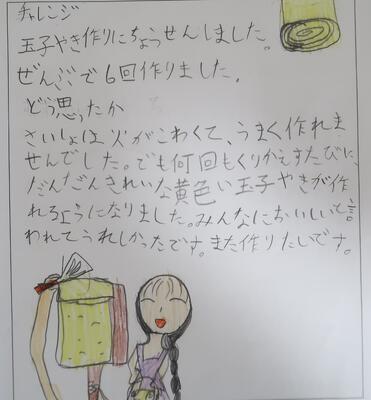 チャレンジ
玉子やき作りにちょうせんしました。
ぜんぶで6回作りました。
どう思ったか
さいしょは火がこわくて、うまく作れま
せんでした。でも何回もくりかえすたびに、
だんだんきれいな黄色い玉子やきが作
れるようになりました。みんなにおいしいと言
われてうれしかったです。また作りたいです。